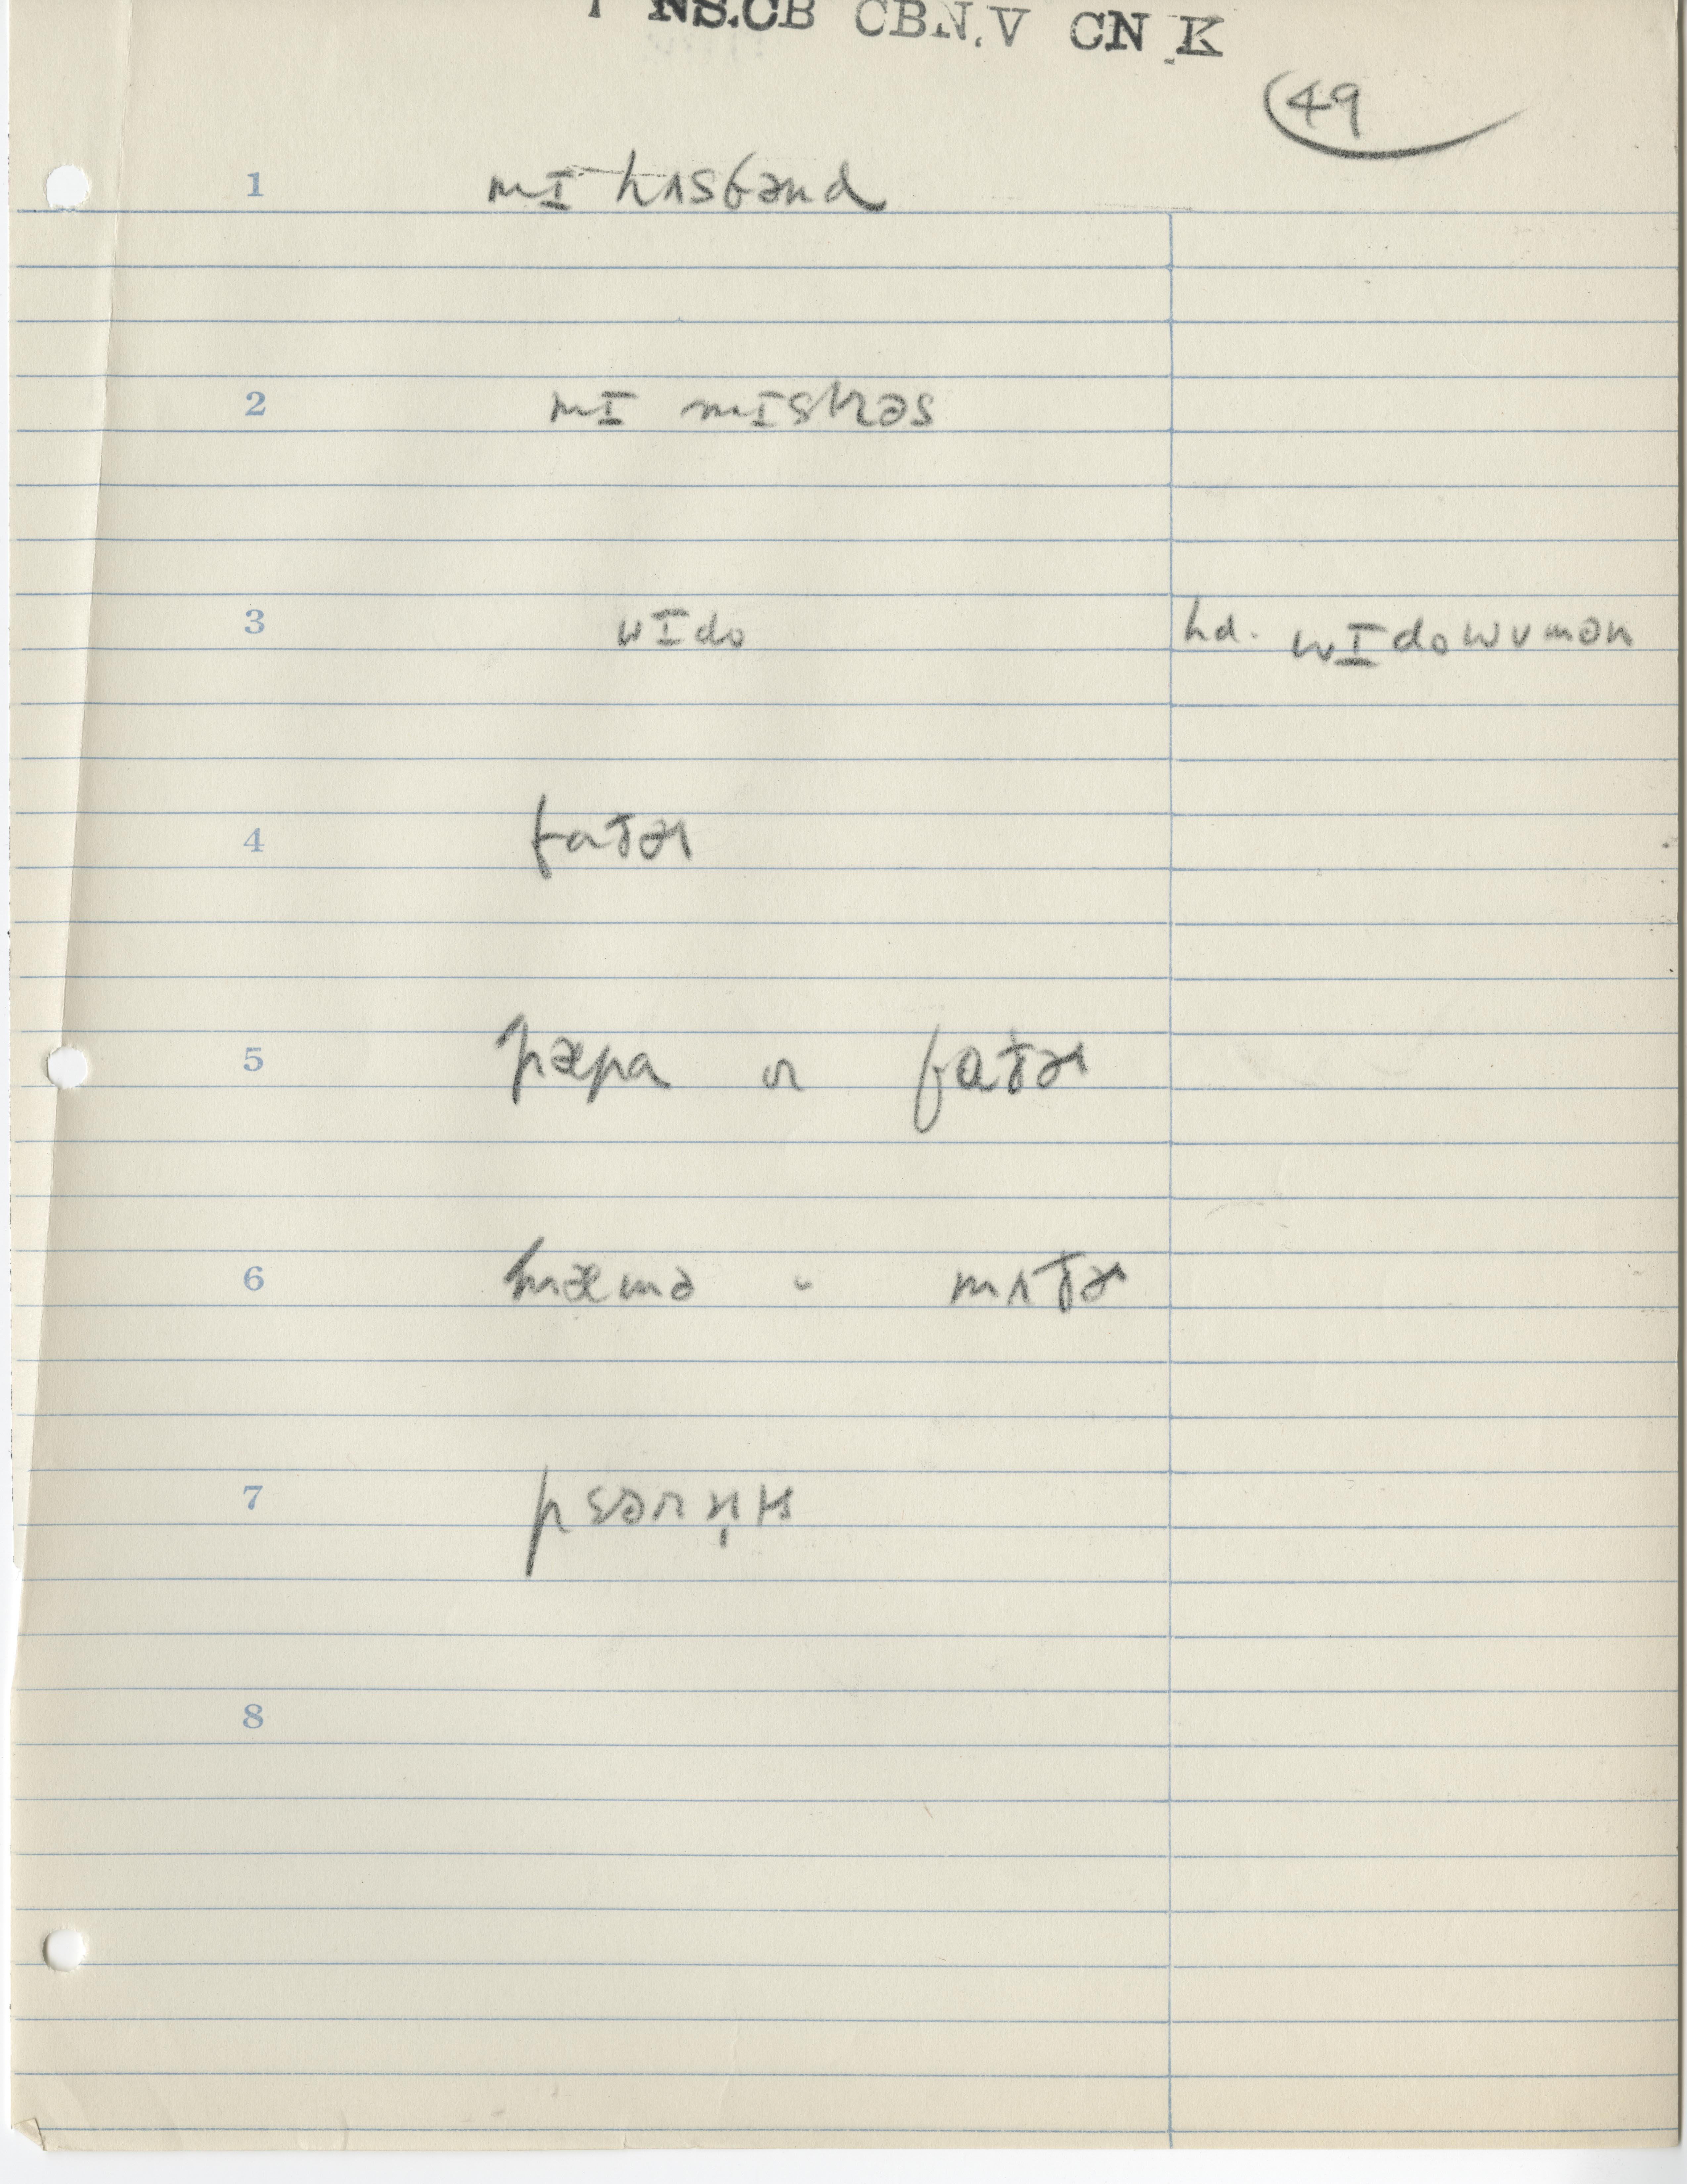 NS.CB CBN.V CN K
49
1 mɪ hʌsbənd
2 mɪ mɪstrəs
3 wɪdo hd. wɪdowʊmən
4 faðɚ
5 pæpa or faðɚ
6 mæmə " mʌðɚ
7 pɛərn̩ts
8